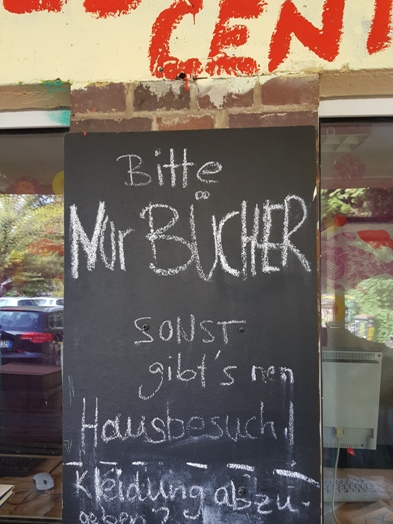 CENT
Bitte
Nur BÜCHER
SONST
gibt's nen
Hausbesuch!
Kleidung abzu-
geben?